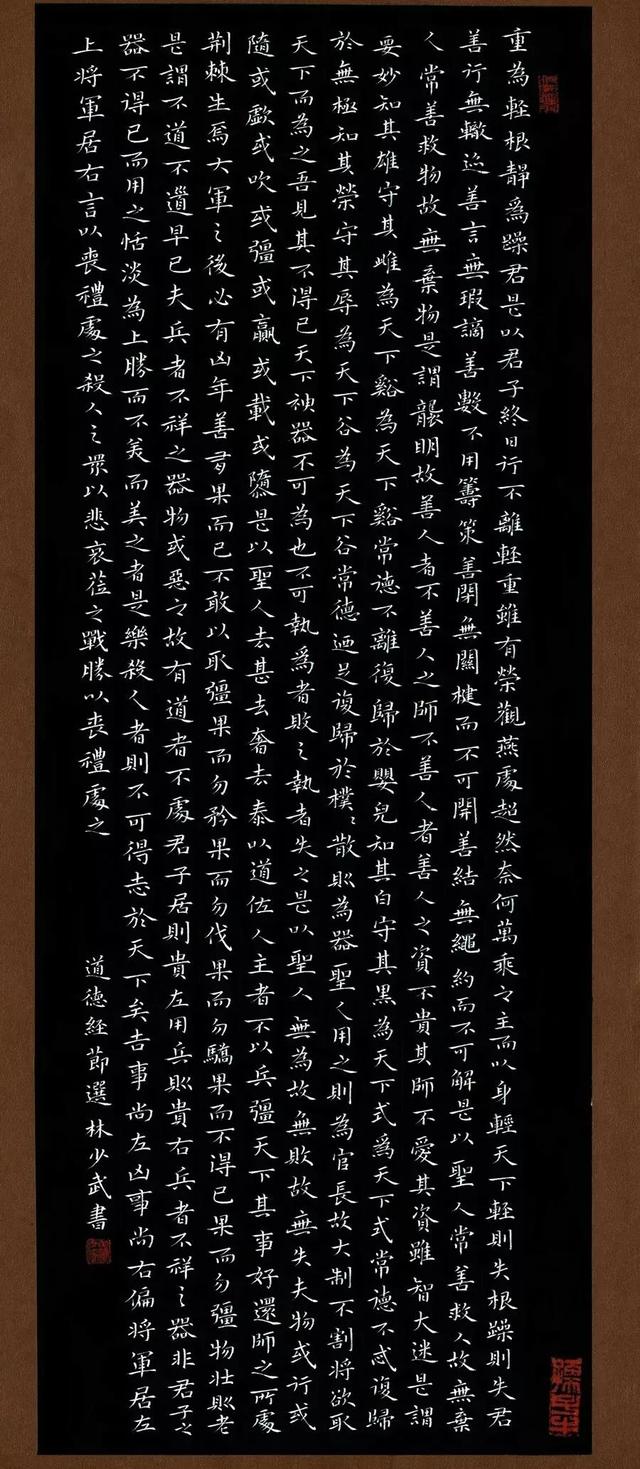 重為輕根靜為躁君是以君子終日行不離輕重雖有榮觀燕處超然奈何萬乘之主而以身輕天下輕則失根躁則失君
善行無轍迹善言無瑕謫善數不用籌策善閉無關楗而不可開善結無繩約而不可解是以聖人常善救人故無棄
人常善救物故無棄物是謂襲明故善人者不善人之師不善人者善人之資不貴其師不愛其資雖智大迷是謂
要妙知其雄守其雌為天下谿為天下谿常德不離復歸於嬰兒知其白守其黑為天下式為天下式常德不忒復歸
於無極知其榮守其辱為天下谷為天下谷常德迺足復歸於樸〻散則為器聖人用之則為官長故大制不割將欲取
天下而為之吾見其不得已天下神器不可為也不可執為者敗之執者失之是以聖人無為故無敗故無失夫物或行或
隨或歔或吹或彊或羸或載或隳是以聖人去甚去奢去泰以道佐人主者不以兵彊天下其事好還師之所處
荆棘生焉大軍之後必有凶年善者果而已不敢以取彊果而勿矜果而勿伐果而勿驕果而不得已果而勿彊物壯則老
是謂不道不道早已夫兵者不祥之器物或惡之故有道者不處君子居則貴左用兵則貴右兵者不祥之器非君子之
器不得已而用之恬淡為上勝而不美而美之者是樂殺人者則不可得志於天下矣吉事尚左凶事尚右偏將軍居左
上將軍居右言以喪禮處之殺人之眾以悲哀莅之戰勝以喪禮處之
道德經節選 林少武書